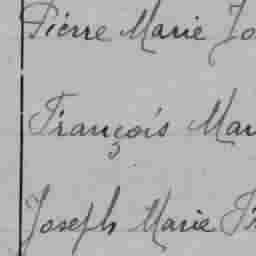 Pierre Marie Jo
François Mar
Joseph Marie Fr